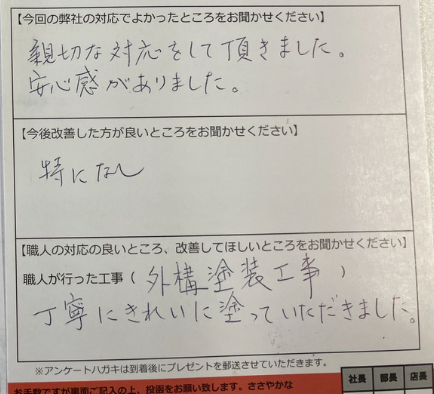 【今回の弊社の対応でよかったところをお聞かせください】
親切な対応をして頂きました。
安心感がありました。
【今後改善した方が良いところをお聞かせください】
特になし
【職人の対応の良いところ、改善してほしいところをお聞かせください】
職人が行った工事(外構塗装工事)
丁寧にきれいに塗っていただきました。
※アンケートハガキは到着後にプレゼントを郵送させていただきます。
お手数ですが裏面ご記入の上、投函をお願い致します。ささやかな
社長 部長 店長